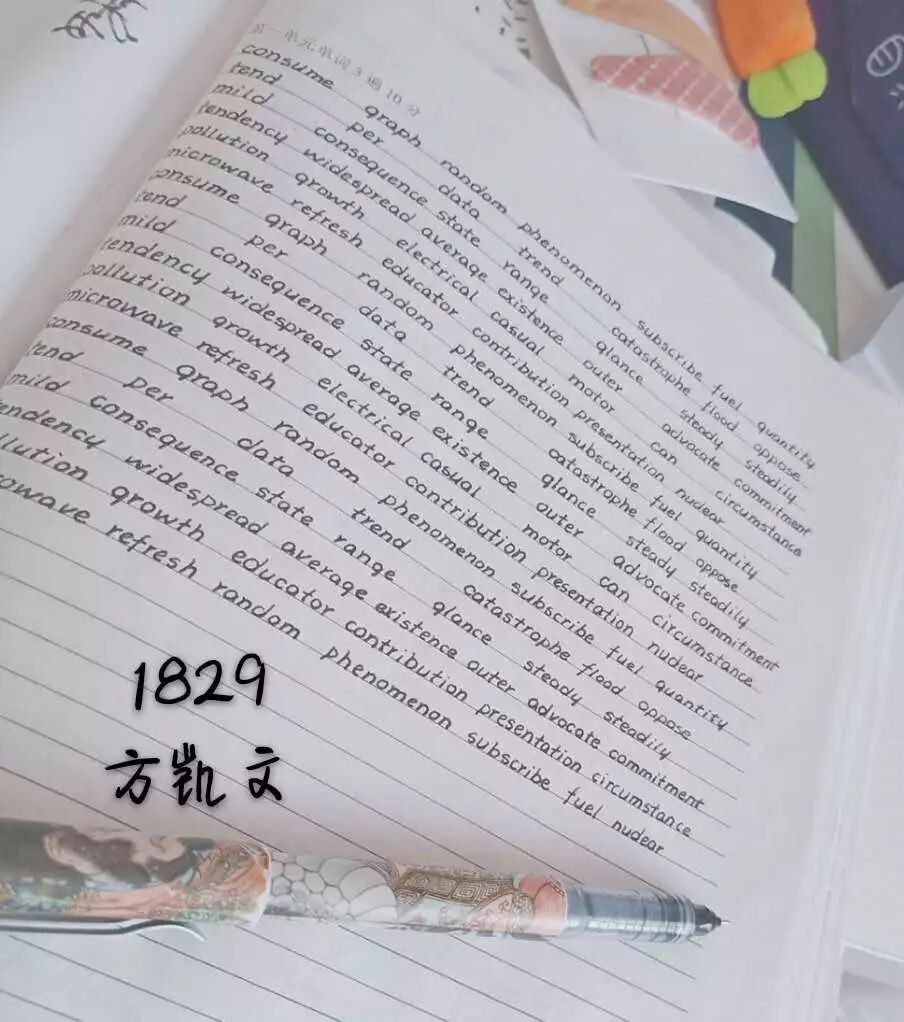 第一单元单词3遍10分
consume graph random phenomenon subscribe fuel quantity
tend per data trend catastrophe flood oppose
mild consequence state range glance steady steadily
tendency widespread average existence outer advocate commitment
pollution growth electrical casual motor can circumstance
microwave refresh educator contribution presentation nuclear
consume graph random phenomenon subscribe fuel quantity
tend per data trend catastrophe flood oppose
mild consequence state range glance steady steadily
tendency widespread average existence outer advocate commitment
pollution growth electrical casual motor can circumstance
microwave refresh educator contribution presentation nuclear
consume graph random phenomenon subscribe fuel quantity
tend per data trend catastrophe flood oppose
mild consequence state range glance steady steadily
endency widespread average existence outer advocate commitment
llution growth educator contribution presentation circumstance
owave refresh random phenomenon subscribe fuel nuclear
1829
方凯文